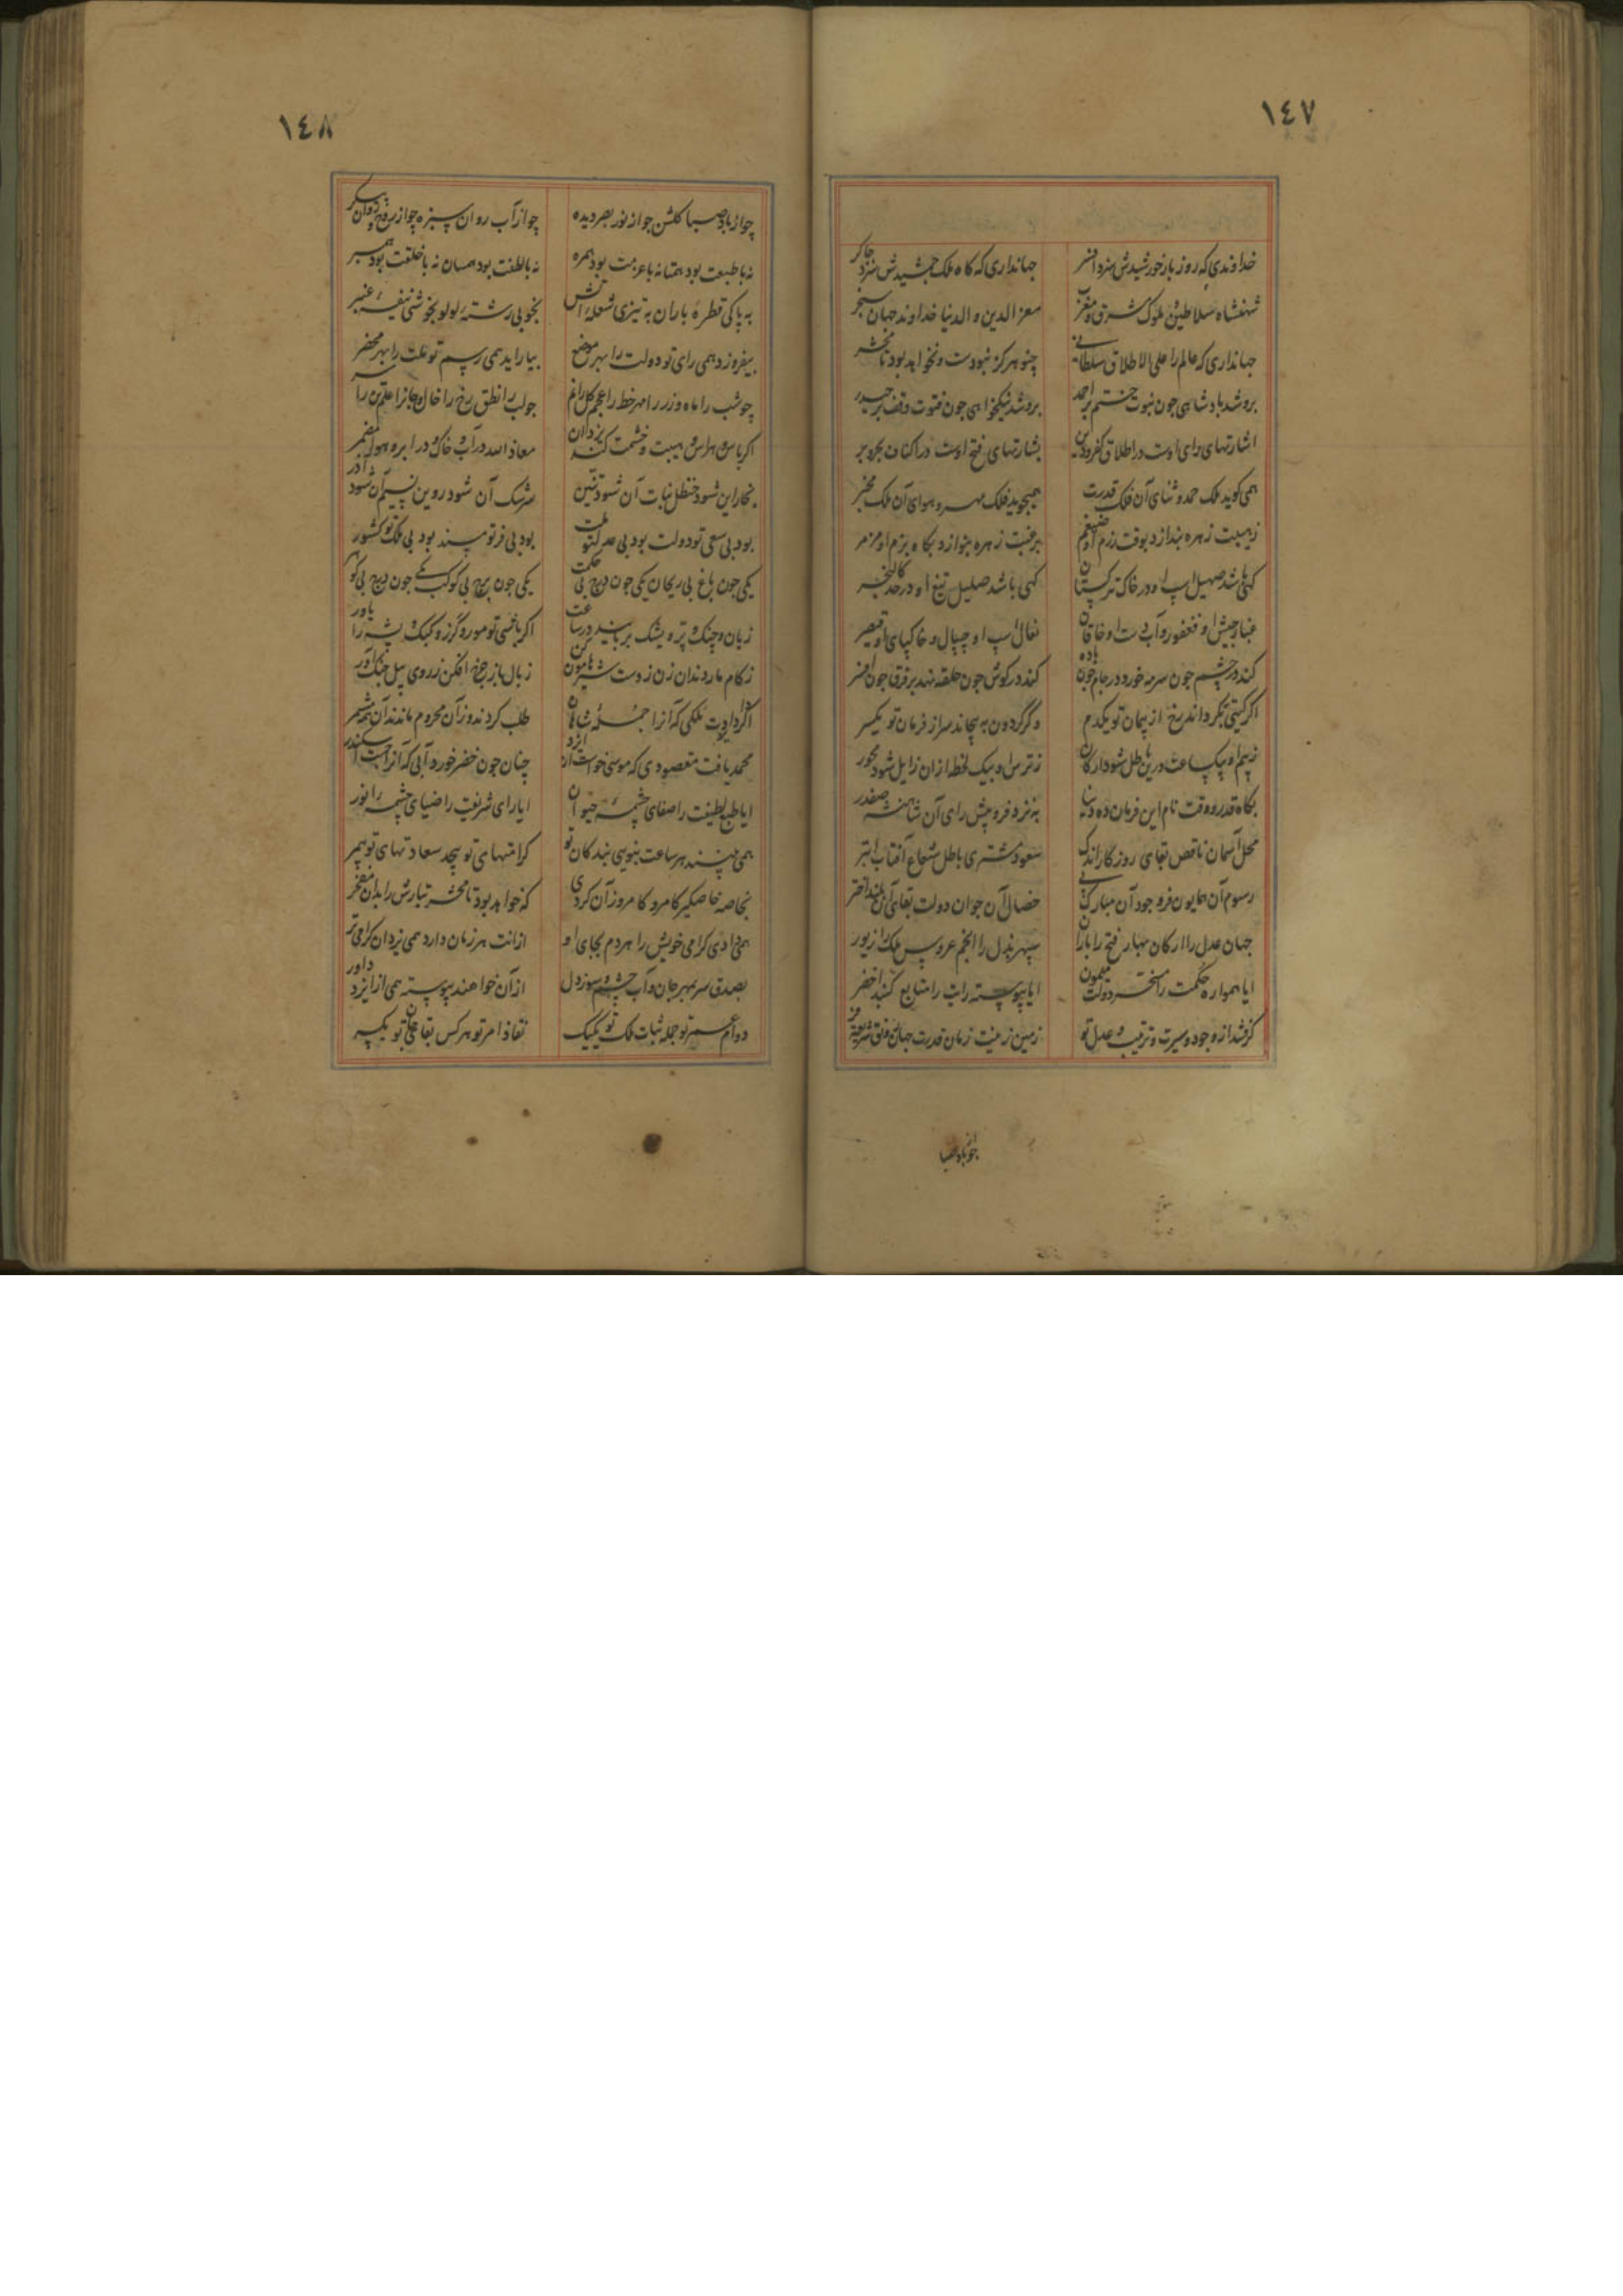 ١٤٧
خداوندی که روز بار خورشیدش سزد افسر جهانداری که گاه ملک جمشیدش سزد چاکر
شهنشاه سلاطین و ملوک مشرق و مغرب معز الدین و الدنیا خداوند جهان سنجر
جهانداری که عالم را علی الاطلاق سلطانی چنو هرگز نبودست و نخواهد بود تا محشر
بروشد پادشاهی چون نبوت ختم بر احمد بروشد نیکخواهی چون فتوت وقف بر حیدر
اشارتهای رای اوست در اطلاق کفر و دین بشارتهای فتح اوست در اکناف بحر و بر
همی گوید ملک حمد و ثنای آن فلک قدرت همیجوید فلک مهر و هوای آن ملک مخبر
ز هیبت زهره بندازد بوقت رزم او ضیغم برغبت زهره بنوازد بگاه بزم او مزمر
گهی باشد صهیل اسپ او در خاک ترکستان گهی باشد صلیل تیغ او در حد کالنجر
غبار جیش او فغفور و آب دست او خاقان نعال اسپ او چیپال و خاکپای او قیصر
کند در چشم چون سرمه خورد در جام چون باده کند در گوش چون حلقه نهد بر فرق چون افسر
اگر گیتی بگرداند رخ از پیمان تو یکدم و گر گردون به پیچاند سر از فرمان تو یکسر
ز بیم او بیک ساعت درین باطل شود ارکان ز ترس او بیک لحظه ازان زایل شود محور
بگاه قدر و وقت نام این فرمان ده دنیا به نزد فر و پیش رای آن شاهنشه صفدر
محل آسمان ناقص بقای روزگار اندک سعود مشتری باطل شعاع آفتاب ابتر
رسوم آن همایون فر وجود آن مبارک پی خصال آن جوان دولت بقای آن بلند اختر
جهان عدل را ارکان بهار فتح را باران سپهر بذل را انجم عروس ملک را زیور
ایا همواره حکمت را مسخر دولت میمون ایا پیوسته رایت را متابع گنبد اخضر
گرفتند از وجود و سیرت و ترتیب و عدل تو زمین زینت زمان قدرت جهان رونق شریعت فر
چو از باد صبا
١٤٨
چو از باد صبا گلشن چو از نور بصر دیده چو از آب روان سبزه چو از روح و روان پیکر
نه با طبعت بود همتا نه با عزمت بود همره نه با لطفت بود همسان نه با خلقت بود همبر
به پاکی قطرهٔ باران به تیزی شعلهٔ آتش بخوبی رشتهٔ لولو بخوشی نیفهٔ عنبر
بیفروزد همی رای تو دولت را بهر موضع بیاراید همی رسم تو ملت را بهر محضر
چو شب را ماه و زر را مهر خط را عجم گل را نم چو لب را نطق رخ را خال و جانرا علم تن را سر
اگر باس و هراس و هیبت و خشمت کند یزدان معاذ الله در آب و خاک و در ابر و هوا مضمر
بخار این شود حنظل نبات آن شود تنین سرشک آن شود روین نسیم آن شود آذر
بود بی سعی تو دولت بود بی عدل تو ملت بود بی فر تو مسند بود بی ملک تو کشور
یکی چون باغ بی ریحان یکی چون درج بی حکمت یکی چون برج بی کوکب یکی چون درج بی گوهر
زبان و چنگ و پر و یشک بر باشند در ساعت اگر باشی تو مور و گرز و کبک و پشه را یاور
ز کام مار دندان زن ز دست شیر هامون کن ز بال باز چرخ افکن ز روی پیل جنگ آور
اگر دادت ملکی که آنرا جملهٔ شاهان طلب کردند و زآن محروم ماندند آن همه مشمر
محمد یافت مقصودی که موسی خواست از ایزد چنان چون خضر خورد آبی که آنرا جست اسکندر
ایا طبع لطیفت را صفای چشمهٔ حیوان ایا رای شریفت را ضیای چشمهٔ انور
همی بینند هر ساعت بنوی بندگان تو کرامتهای تو بیحد سعادتهای تو بیمر
بخاصه خاصگیر کامرو کامروز آن کردی که خواهد بود تا محشر تبارش را بدان مفخر
همی دادی گرامی خویش را هر دم بجای او ازانت هر زمان دارد همی یزدان گرامی تر
بصدق سر بمهر جان و آب چشم و سوز دل از آن خواهند پیوسته همی از ایزد داور
دوام عمر تو جمله ثبات ملک تو یکیک نفاذ امر تو هرکس بقای جان تو یکسر